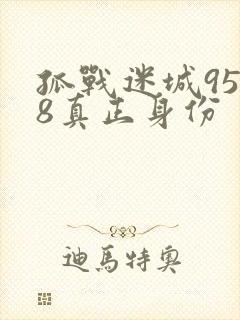 孤戰迷城95
8真正身份
迪馬特奧